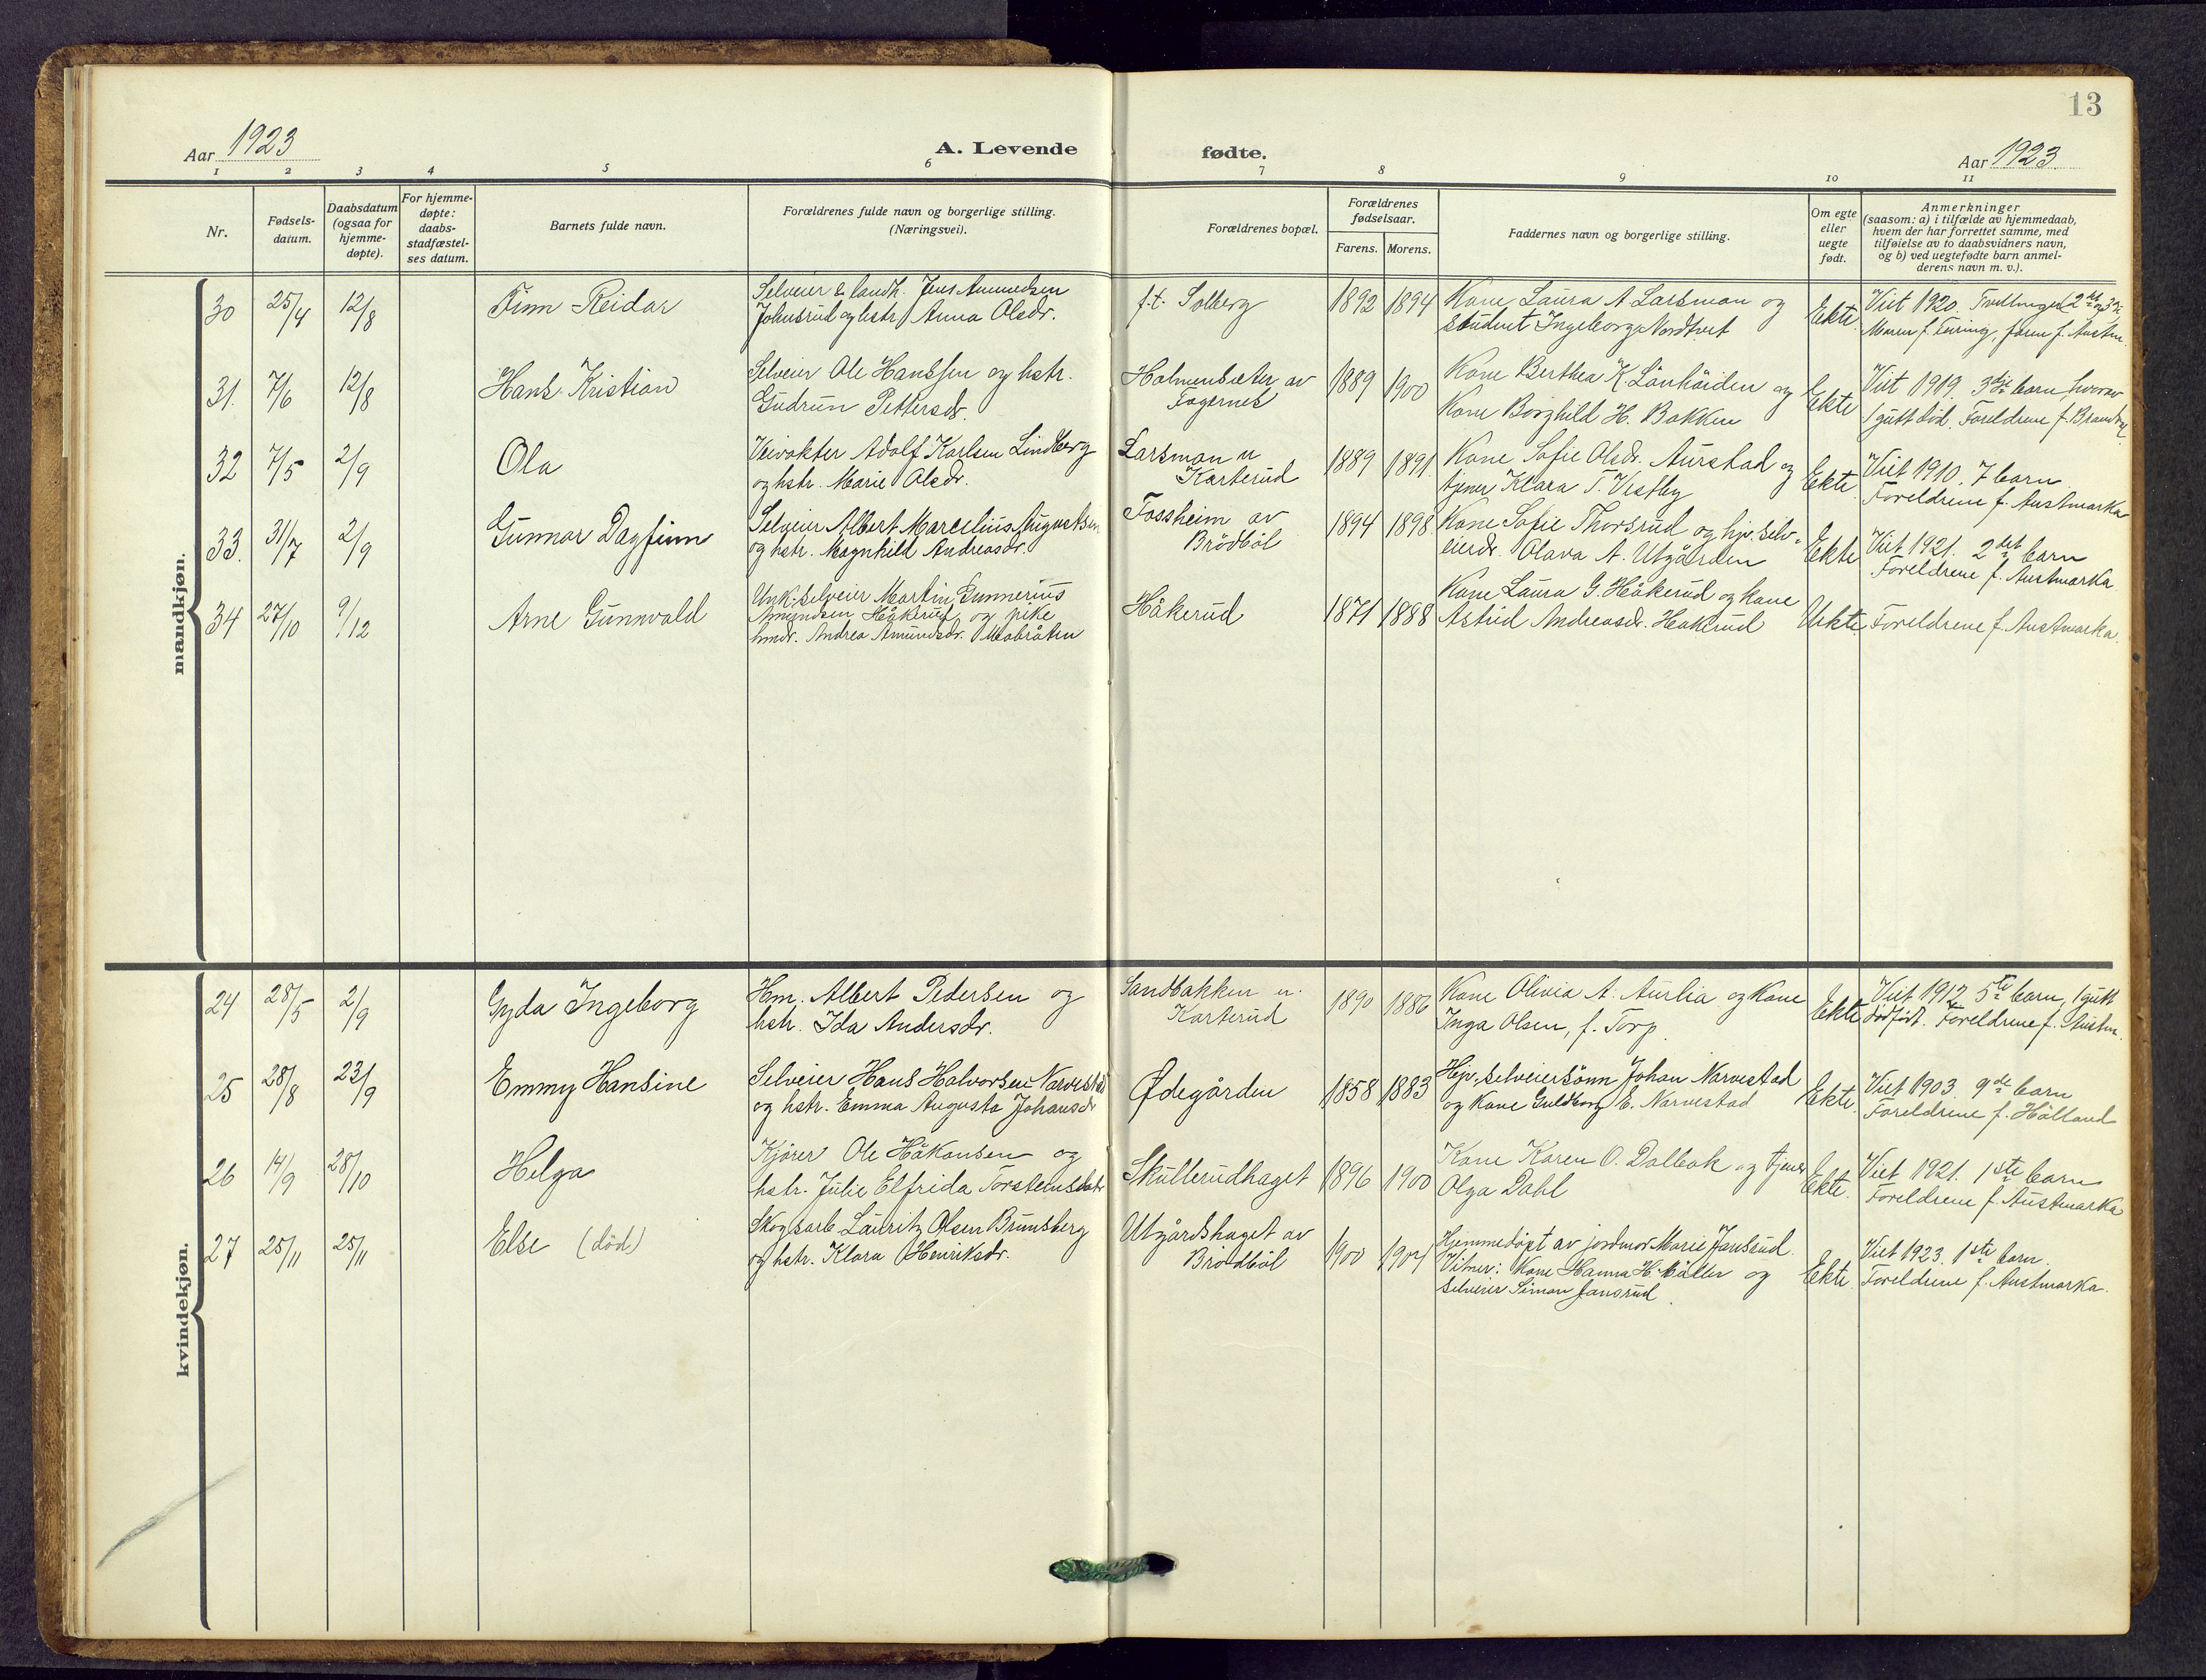 13
Aar 1923
A. Levende
fødte.
Aar 1923.
1 2 3 4 5 6 7 8 9 10 11
Nr.
Fødsels-
datum.
Daabsdatum
(ogsaa for
hjemme-
døpte).
For hjemme-
døpte:
daabs-
stadfæstel-
ses datum.
Barnets fulde navn.
Forældrenes fulde navn og borgerlige stilling.
(Næringsvei).
Forældrenes bopæl.
Forældrenes
fødselsaar.
Farens. Morens.
Faddernes navn og borgerlige stilling.
Om egte
eller
uegte
født.
Anmerkninger
(saasom: a) i tilfælde av hjemmedaab,
hvem der har forrettet samme, med
tilføielse av to daabsvidners navn,
og b) ved uegtefødte barn anmel-
derens navn m. v.).
mandkjøn.
30 25/4 12/8 Finn Reidar
Selveier & landh. Jens Amundsen
Johnsrud og hstr. Anna Olsdr.
f.t. Solberg
1892 1894
Kone Laura A. Larsmon og
student Ingeborg Nordtvet
Ekte
Viet 1920. Tvillinger 2det og 3die
Moren f. Faren f. Austm.
31. 7/6 12/8 Hans Kristian
Selveier Ole Hanssen og hstr.
Gudrun Pettersdr.
Holmensæter av
Fagernes
1889 1900
Kone Berthea K. Lönhöiden og
Kone Borghild H. Bakken
Ekte
Viet 1919. 3dje barn hvorav
1 gutt död. Foreldrene f. Brandval
32 7/5 2/9 Ola
Veivokter Adolf Karlsen Lindberg
og hstr. Marie Olsdr.
Larsmon u
Karterud
1889 1891.
Kone Sofie Olsdr. Aurstad og
tjener Klara T. Vestby
Ekte
Viet 1910. 7 barn
Foreldrene f. Austmarka
33. 31/7 2/9 Gunnar Dagfinn
Selveier Albert Marcelius Augustsen
og hstr. Magnhild Andreasdr.
Fossheim av
Brödböl
1894 1898.
Kone Sofie Thorsrud og hjv. selv-
eierdr. Olava A. Utgården
Ekte
Viet 1921. 2det barn
Foreldrene f. Austmarka.
34 27/10 9/12 Arne Gunnvald
Unk. selveier Martin Gunnerius
Amundsen Håkerud og pike
hmdr. Andrea Amundsdr. Mobråten
Håkerud
1871 1888
Kone Laura G. Håkerud og kone
Astrid Andreasdr. Håkerud
Uekte
Foreldrene f. Austmarka.
kvindekjøn.
24 28/5 2/9 Gyda Ingeborg
Hm. Albert Pedersen og
hstr. Ida Andersdr.
Sandbakken u.
Karterud
1890 1886
Kone Olivia A. Aurlia og Kone
Inga Olsen, f. Torp
Ekte
Viet 1912 5te barn, 1 gutt
dödfödt. Foreldrene f. Austm.
25 28/8 23/9 Emmy Hansine
Selveier Hans Halvorsen Narvestad
og hstr. Emma Augusta Johansdr
Ødegården
1858 1883
Hjv. selveiersönn Johan Narvestad
og Kone Guldborg E. Narvestad
Ekte.
Viet 1903. 9de barn
Foreldrene f. Hölland
26 14/9 28/10 Helga
Kjörer Ole Håkonsen og
hstr. Julie Elfrida Torsteinsdatr
Skullerudhaget
1896 1900
Kone Karen O. Dalbak og tjener
Olga Dahl
Ekte.
Viet 1921. 1ste barn
Foreldrene f. Austmarka
27 25/11 25/11 Else (död)
Skogsarb. Lauritz Olsen Brunsberg
og hstr. Klara Henriksdr.
Utgårdshaget av
Brödböl
1900 1904
Hjemmedöpt av jordmor Marie Jansrud.
Vitner: Kone Hanna H. Müller og
selveier Simon Jansrud
Ekte
Viet 1923. 1ste barn.
Foreldrene f. Austmarka.